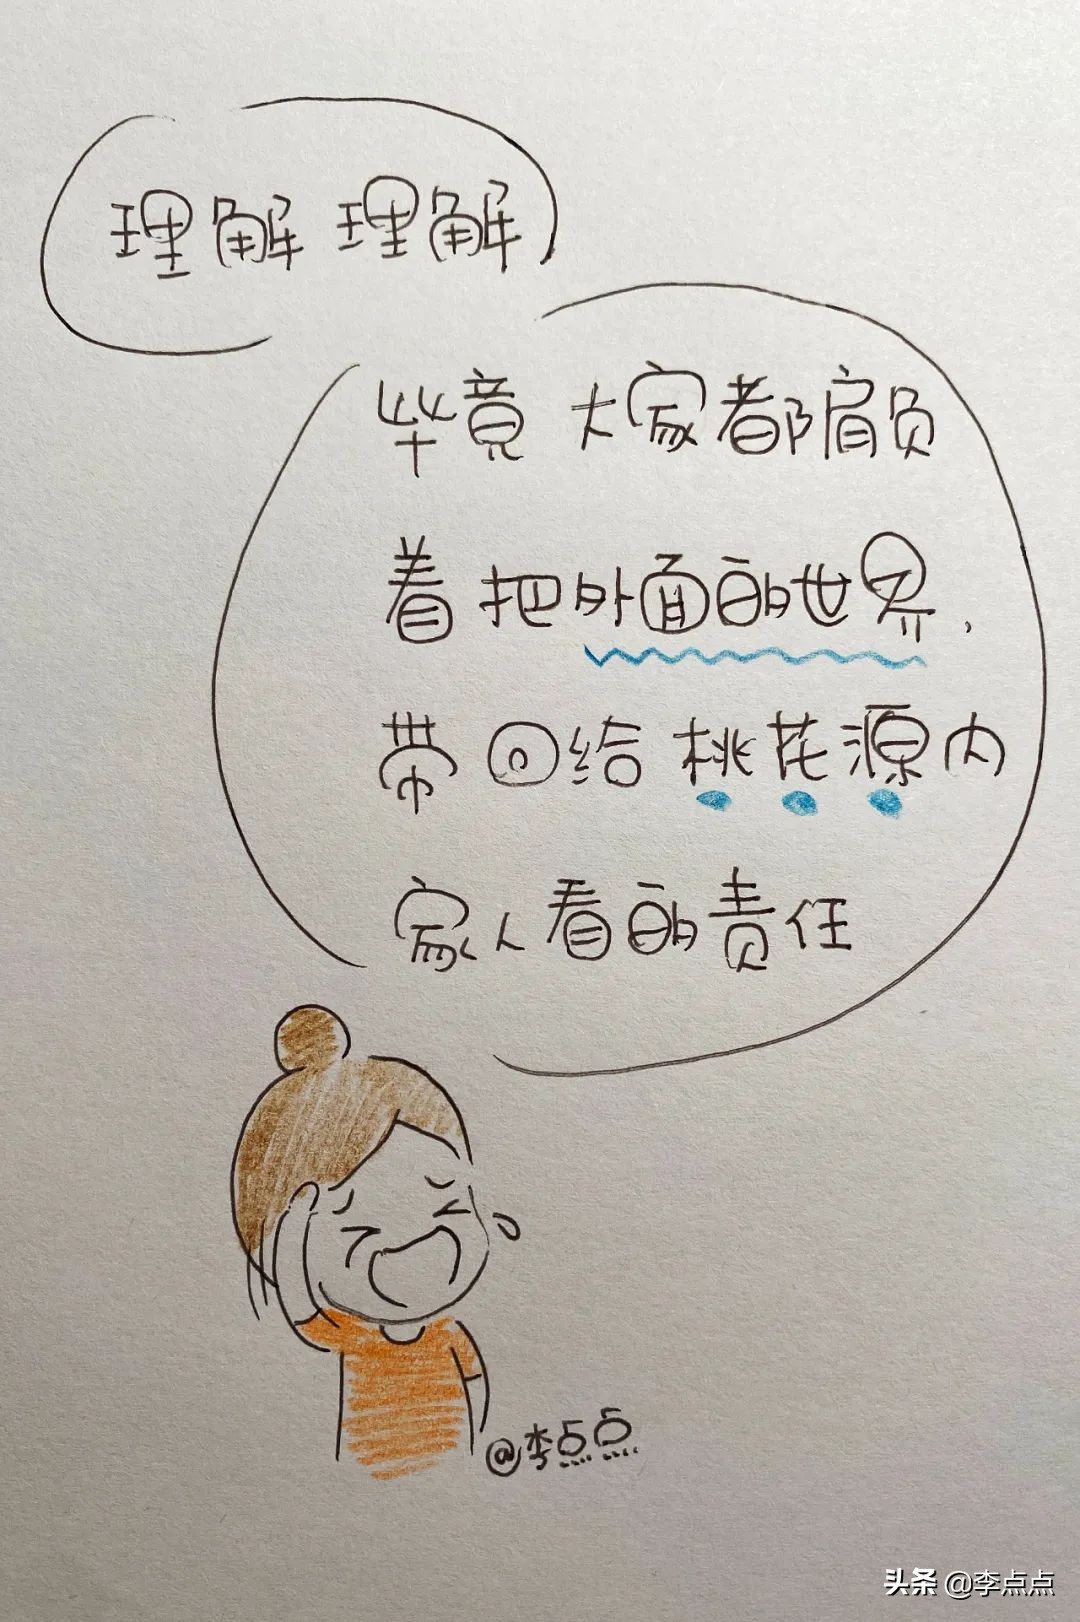 理解 理解
毕竟 大家都肩负
着把外面的世界，
带回给桃花源内
家人看的责任
@李点点
头条 @李点点